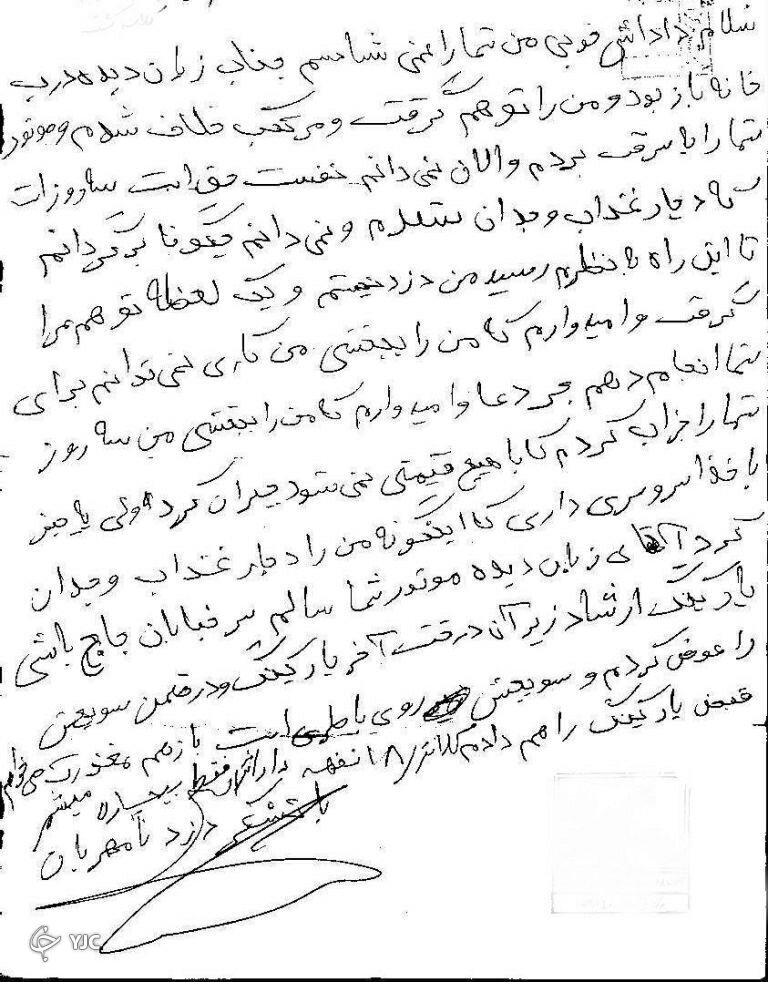 سلام داداش خوبی من شما را نمی شناسم جناب زیان دیده درب
خانه باز بود و من را توهم گرفت و مرتکب خلاف شدم و موتور
شما را با سرقت بردم و الان نمی دانم خفست حق است سه روز است
که دچار عذاب وجدان شدم و نمی دانم چگونا برگردانم
تا این راه به نظرم رسید من دزد نیستم و یک لحظه توهم مرا
گرفت و امیدوارم که من را ببخشی من کاری نمی توانم برای
شما انجام دهم جز دعا و امیدوارم که من را ببخشی من سه روز
شما را خراب کردم که با هیچ قیمتی نمی شود جبران کرد ولی یا چیز
با خدا سر و سری داری که اینگونه من را دچار عذاب وجدان
کرد آقای زیان دیده موتور شما سالم سر خیابان باشی
پارکینگ ارشاد زیر آن درخت آخر پارکینگ و در ضمن سویچش
را عوض کردم و سویچش روی باطری است باز هم معذرت می خوام
قبض پارکینگ را هم دادم کلانتری ۱۸ نفهمه فقط بیچاره میشم
با تشکر دزد نامهربان
YJC